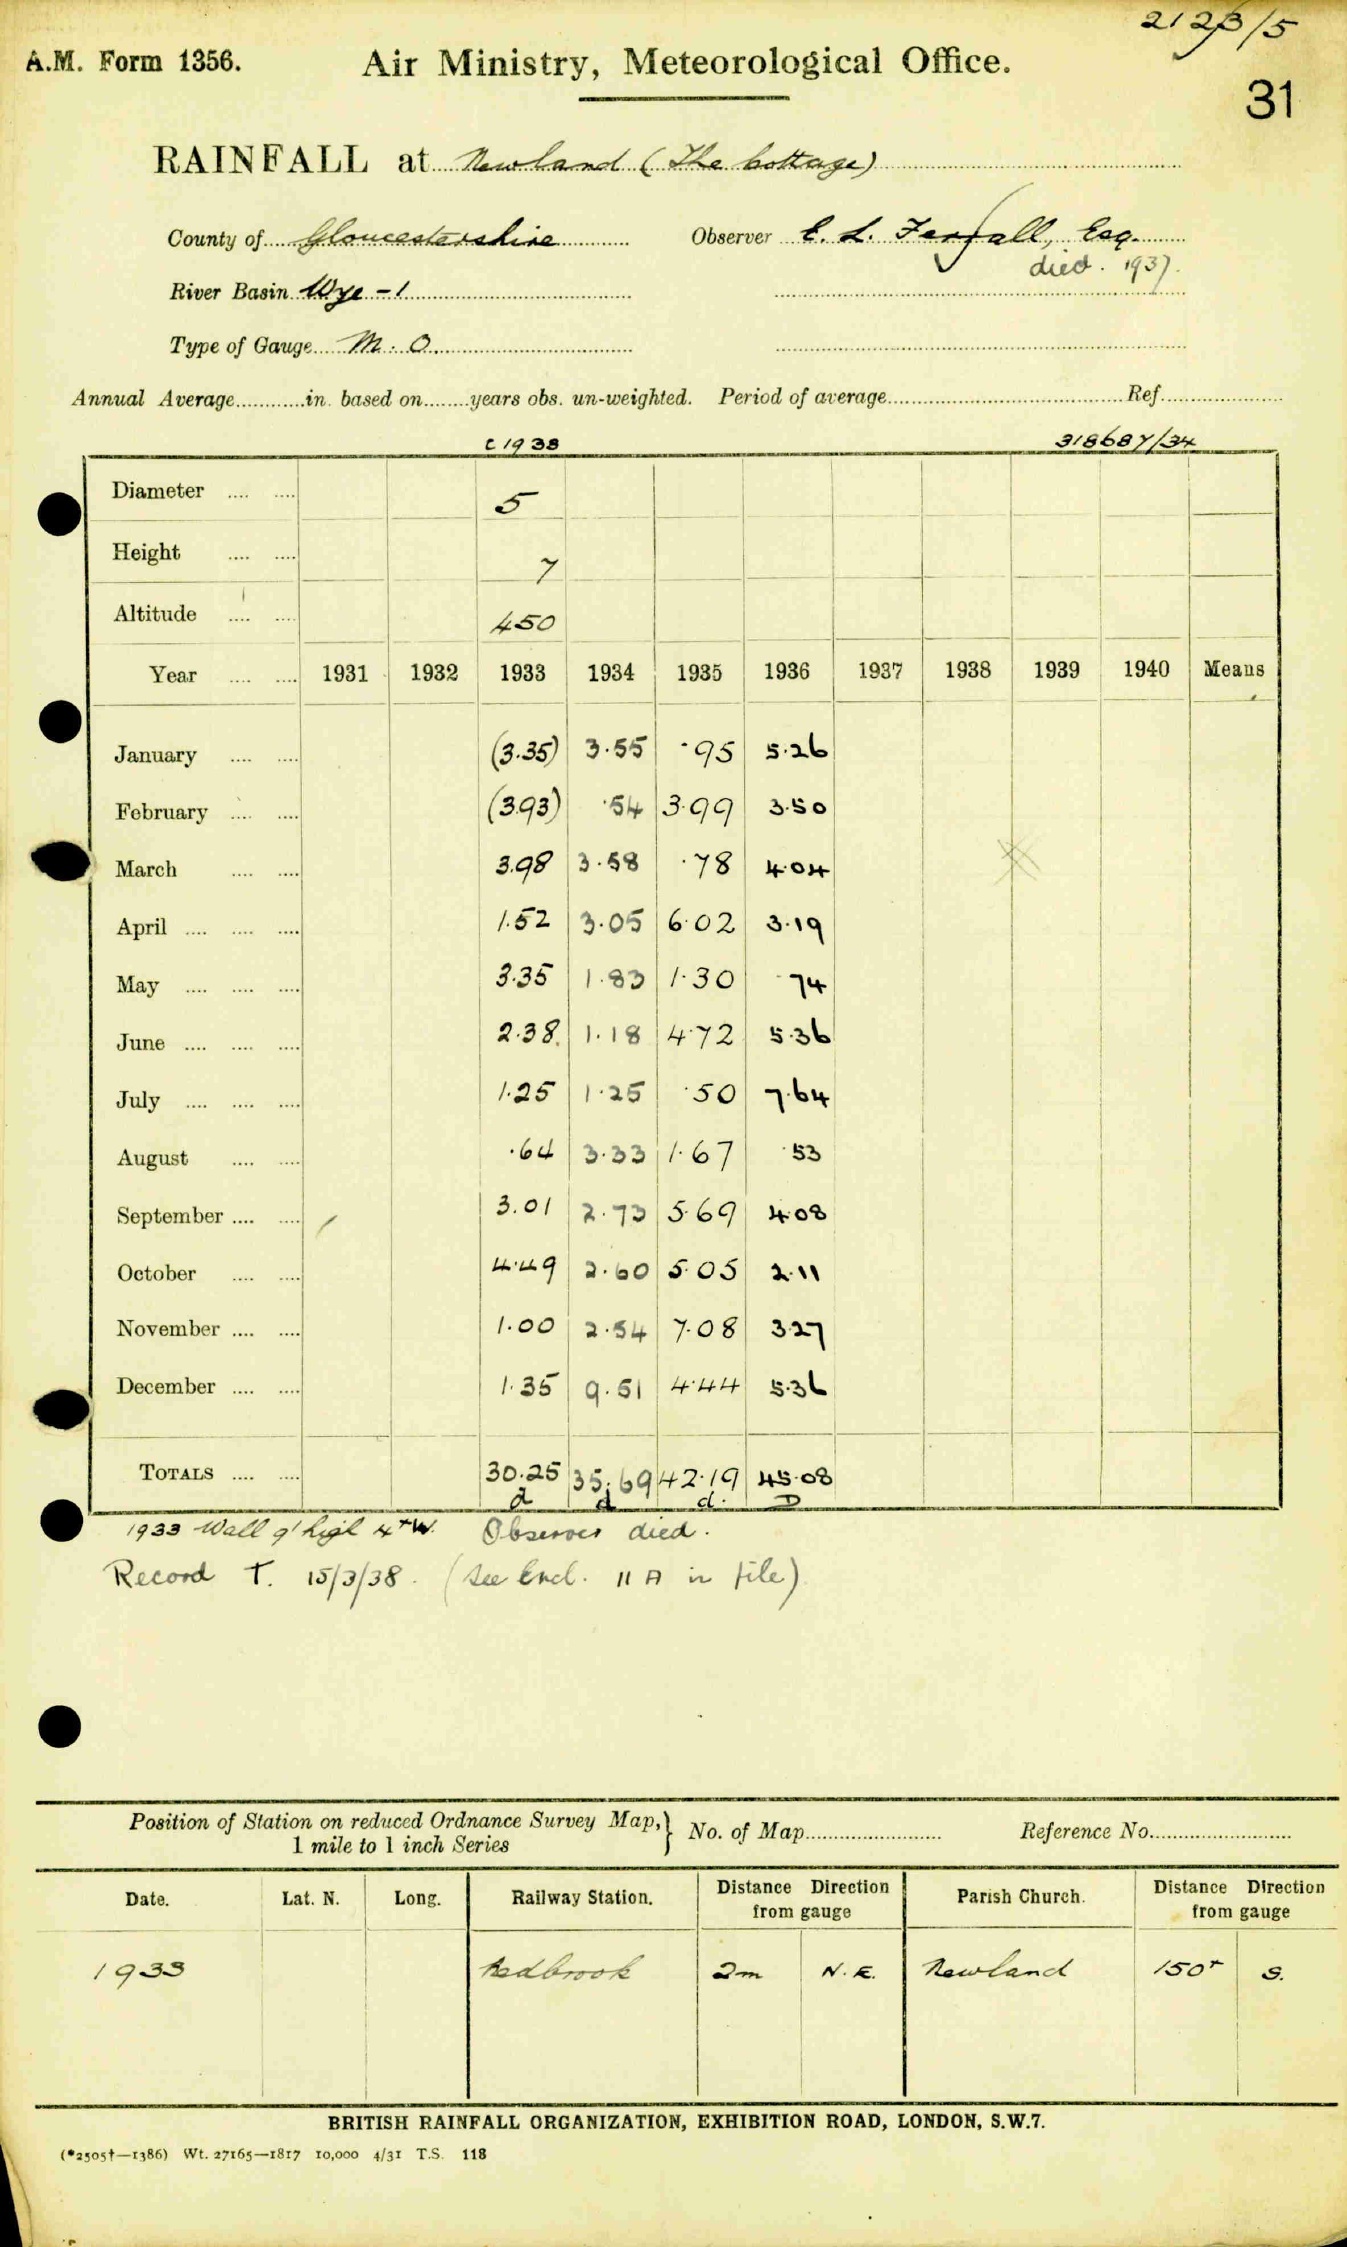 2123/5
A.M. Form 1356. Air Ministry, Meteorological Office.
31
RAINFALL at Newland (The Cottage)
County of Gloucestershire Observer C. L. Fergall, Esq.
died. 1937.
River Basin Wye - 1
Type of Gauge M. O.
Annual Average in. based on years obs. un-weighted. Period of average Ref.
c 1938 318687/34
Diameter 5
Height 7
Altitude 450
Year 1931 1932 1933 1934 1935 1936 1937 1938 1939 1940 Means
January (3.35) 3.55 .95 5.26
February (3.93) .54 3.99 3.50
March 3.98 3.58 .78 4.04
April 1.52 3.05 6.02 3.19
May 3.35 1.83 1.30 .74
June 2.38 1.18 4.72 5.36
July 1.25 1.25 .50 7.64
August .64 3.33 1.67 .53
September 3.01 2.73 5.69 4.08
October 4.49 2.60 5.05 2.11
November 1.00 2.54 7.08 3.27
December 1.35 9.51 4.44 5.36
TOTALS 30.25 35.69 42.19 45.08
d d d. D
1933 Wall 9' high 4+ W. Observer died.
Record T. 15/3/38. (See Encl. 11A in file)
Position of Station on reduced Ordnance Survey Map, } No. of Map Reference No.
1 mile to 1 inch Series
Date. Lat. N. Long. Railway Station. Distance Direction from gauge Parish Church. Distance Direction from gauge
1933 Redbrook 2m N.E. Newland 150+ S.
BRITISH RAINFALL ORGANIZATION, EXHIBITION ROAD, LONDON, S.W.7.
(*2505†—1386) Wt. 27165—1817 10,000 4/31 T.S. 118